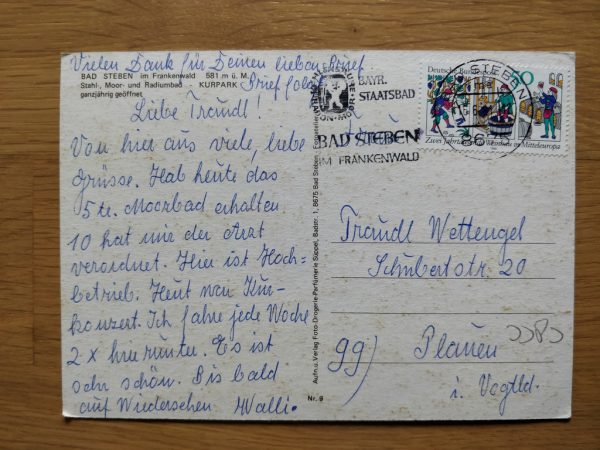 Vielen Dank für Deinen lieben Brief
BAD STEBEN im Frankenwald 581 m ü. M.
Stahl-, Moor- und Radiumbad - KURPARK
ganzjährig geöffnet
Brief folgt
Liebe Traudl!
Von hier aus viele, liebe
Grüsse. Hab heute das
5 te. Moorbad erhalten
10 hat mir der Arzt
verordnet. Hier ist Hoch=
betrieb. Heut war Kur-
konzert. Ich fahre jede Woche
2 x herunter. Es ist
sehr schön. Bis bald
auf Wiedersehen Walli.
Aufn. u. Verlag Foto-Drogerie-Parfümerie Süppel, Badstr. 1, 8675 Bad Steben
Nr. 9
BAYR.
STAATSBAD
BAD STEBEN
IM FRANKENWALD
STEBEN
86
Deutsche Bundespost
50
Zwei Jahrtausende Weinbau in Mitteleuropa
Traudl Wettengel
Schubertstr. 20
99) Plauen
i. Vogtld.